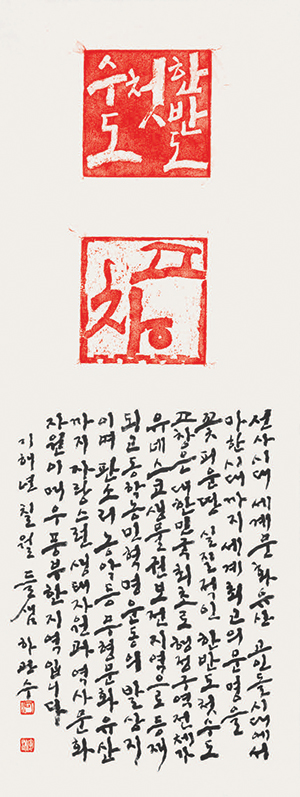 한반도
첫
수도
고창
선사시대 세계문화유산 고인돌시대에서
마한시대까지 세계최고의 문명을
꽃피운땅 실질적인 한반도 첫수도
고창은 대한민국 최초로 행정구역 전체가
유네스코 생물권보전지역으로 등재
되고 동학농민혁명운동의 발상지
이며 판소리 농악등 무형문화유산
까지 자랑스런 생태자원과 역사문화
자원이 매우 풍부한 지역입니다
기해년 칠월 들샘 하관수